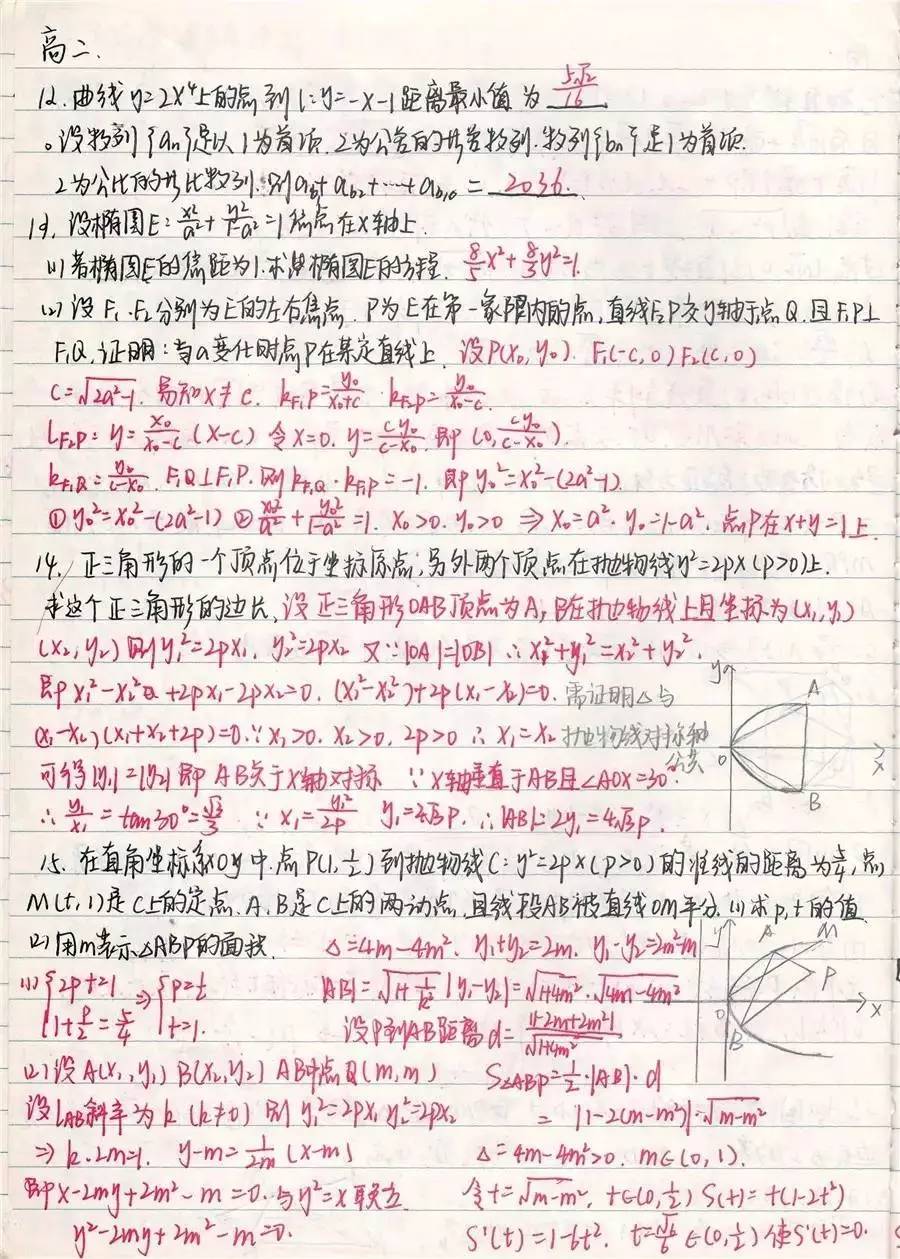 高二.
12. 曲线 y=2x⁴上的点到 l:y=-x-1距离最小值为 5√2/16
。设数列{an}是以1为首项.2为公差的等差数列.数列{bn}是1为首项.
2为公比的等比数列.则ab₁+ab₂+…+ab₁₀= 2036.
13. 设椭圆E: x²/a²+y²/(1-a²)=1焦点在x轴上.
(1)若椭圆E的焦距为1.求椭圆E的方程. 8/5x²+8/3y²=1.
(2)设F₁.F₂分别为E的左右焦点.P为E在第一象限内的点,直线F₂P交y轴于点Q.且F₁P⊥
F₁Q.证明:当a变化时点P在某定直线上. 设P(x₀,y₀). F₁(-c,0)F₂(c,0)
c=√(2a²-1). 易知x≠c. kF₁P=y₀/(x₀+c). kF₂P=y₀/(x₀-c).
lF₂P: y=x₀/(x₀-c)(x-c) 令x=0. y=cy₀/(c-x₀).即(0,cy₀/(c-x₀)).
kF₁Q=y₀/(c-x₀). F₁Q⊥F₁P.则kF₁Q·kF₁P=-1.即y₀²=x₀²-(2a²-1).
①y₀²=x₀²-(2a²-1) ②x₀²/a²+y₀²/(1-a²)=1. x₀>0. y₀>0 ⇒ x₀=a². y₀=1-a². 点P在x+y=1上
14. 正三角形的一个顶点位于坐标原点,另外两个顶点在抛物线y²=2px(p>0)上.
求这个正三角形的边长. 设正三角形OAB顶点为A,B在抛物线上且坐标为(x₁,y₁)
(x₂,y₂)则y₁²=2px₁, y₂²=2px₂ 又∵|OA|=|OB| ∴x₁²+y₁²=x₂²+y₂².
即x₁²-x₂²+2px₁-2px₂=0. (x₁²-x₂²)+2p(x₁-x₂)=0. 需证明△与
(x₁-x₂)(x₁+x₂+2p)=0.∵x₁>0. x₂>0. 2p>0 ∴x₁=x₂ 抛物线对称轴
可得|y₁|=|y₂|即AB关于x轴对称 ∵x轴垂直于AB且∠AOx=30°.
∴y₁/x₁=tan30°=√3/3 ∵x₁=y₁²/2p y₁=2√3p. ∴|AB|=2y₁=4√3p.
y A O B x
15. 在直角坐标系xOy中.点P(1,1/2)到抛物线C:y²=2px(p>0)的准线的距离为5/4,点
M(t,1)是C上的定点.A.B是C上的两动点.且线段AB被直线OM平分.(1)求p,t的值
(2)用m表示△ABP的面积. Δ=4m-4m². y₁+y₂=2m. y₁·y₂=2m²-m
(1){2pt=1 1+p/2=5/4 ⇒{p=1/2 t=1.
|AB|=√(1+1/k²)|y₁-y₂|=√(1+4m²)·√(4m-4m²)
设P到AB距离d=|1-2m+2m²|/√(1+4m²)
y A M P O B x
(2)设A(x₁,y₁)B(x₂,y₂)AB中点Q(m,m) S△ABP=1/2·|AB|·d
设lAB斜率为k(k≠0)则y₁²=2px₁ y₂²=2px₂ =|1-2(m-m²)|·√(m-m²)
⇒k·2m=1. y-m=1/2m(x-m) Δ=4m-4m²>0. m∈(0,1).
即x-2my+2m²-m=0.与y²=x联立 令t=√(m-m²). t∈(0,1/2) S(t)=t(1-2t²)
y²-2my+2m²-m=0. S'(t)=1-6t². t=√6/6∈(0,1/2)使S'(t)=0.